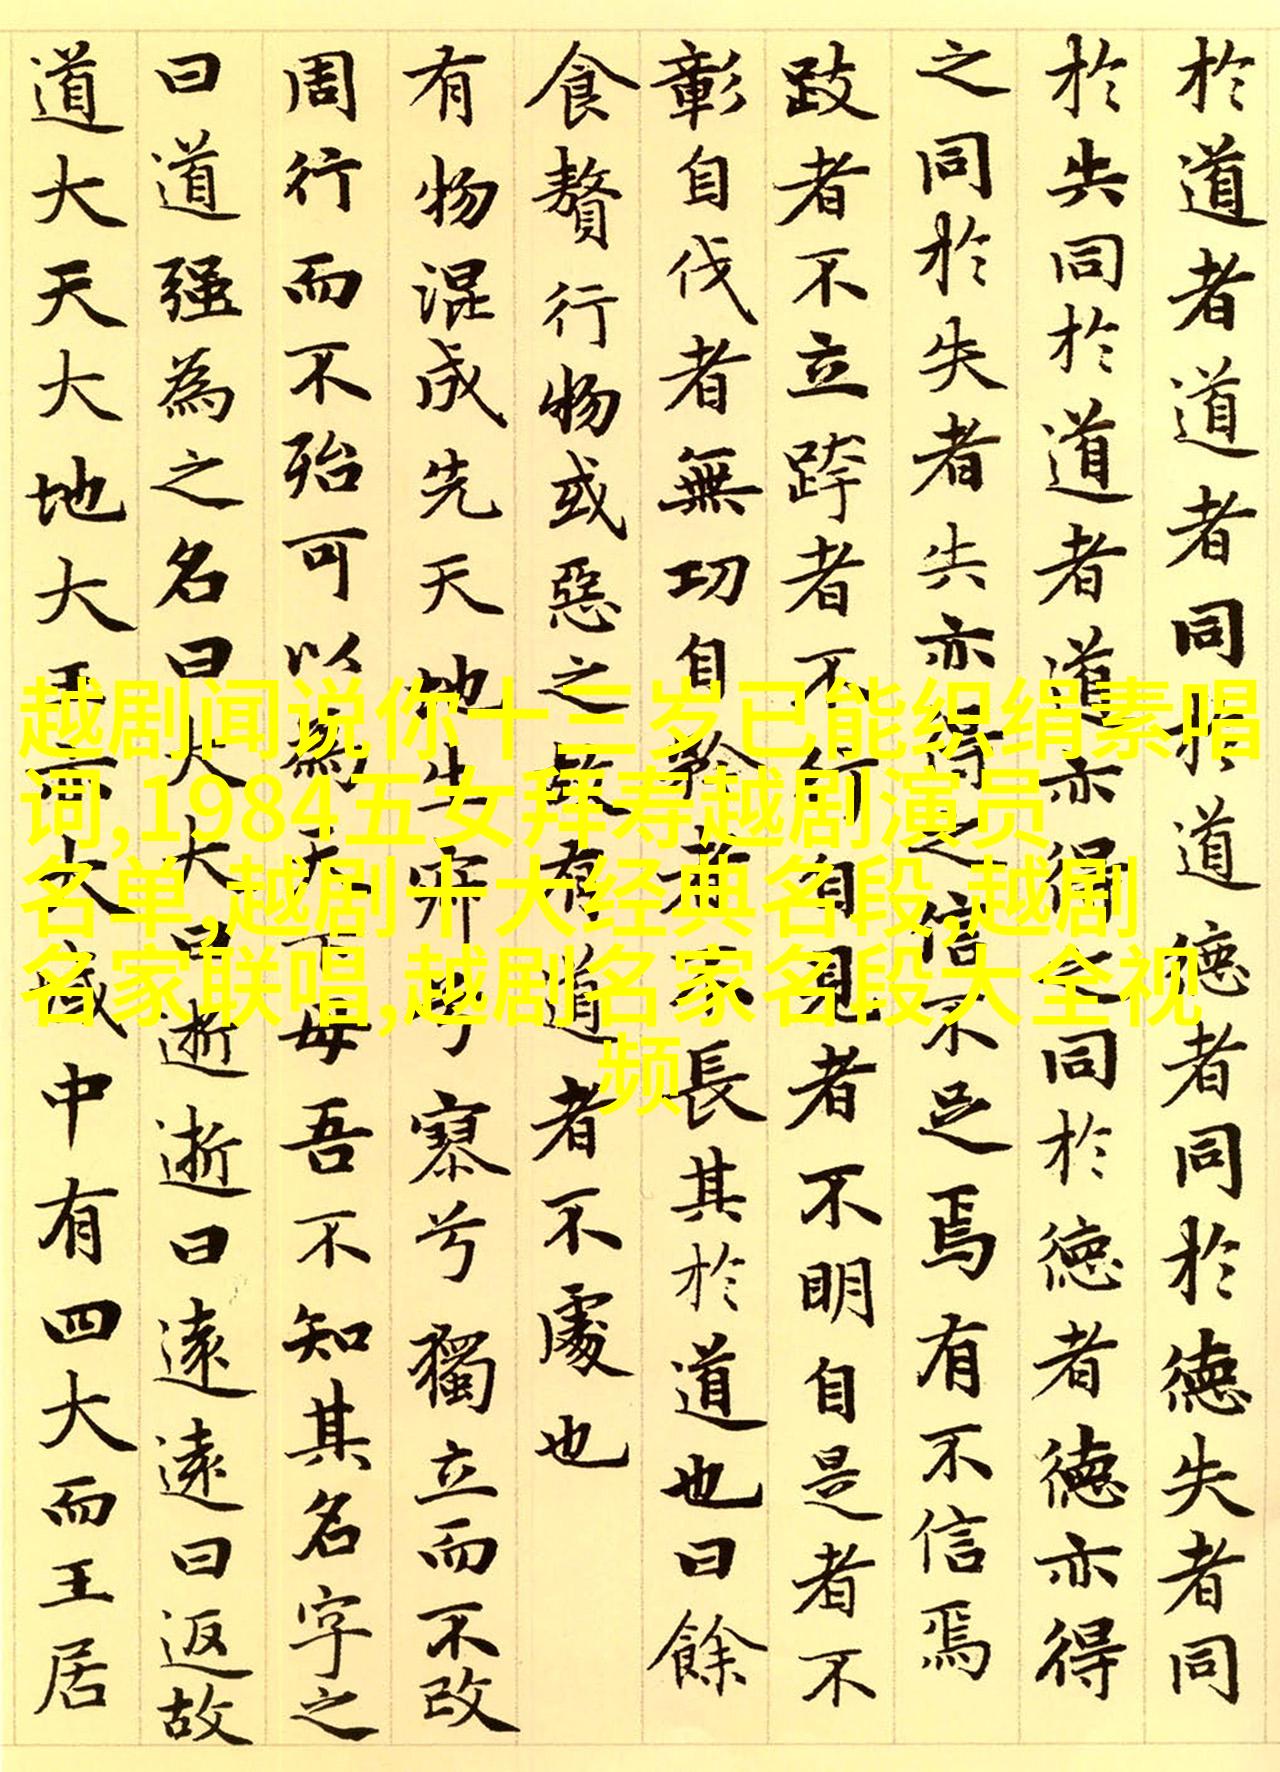 於道者道者同於道德者同於德失者同
於失同於道者道亦得之同於德者德亦得
之同於失者失亦得之信不足焉有不信焉
跂者不立跨者不行自見者不明自是者不
彰自伐者無功自矜者不長其於道也曰餘
食贅行物或惡之故有道者不處也
有物混成先天地生寂兮寥兮獨立而不改
周行而不殆可以為天下母吾不知其名字之
曰道强為之名曰大大曰逝逝曰遠遠曰返故
道大天大地大王亦大域中有四大而王居
越剧闻说你十三岁已能织绢素唱
词,1984五女拜寿越剧演员
名单,越剧十大经典名段,越剧
名家联唱,越剧名家名段大全视
频